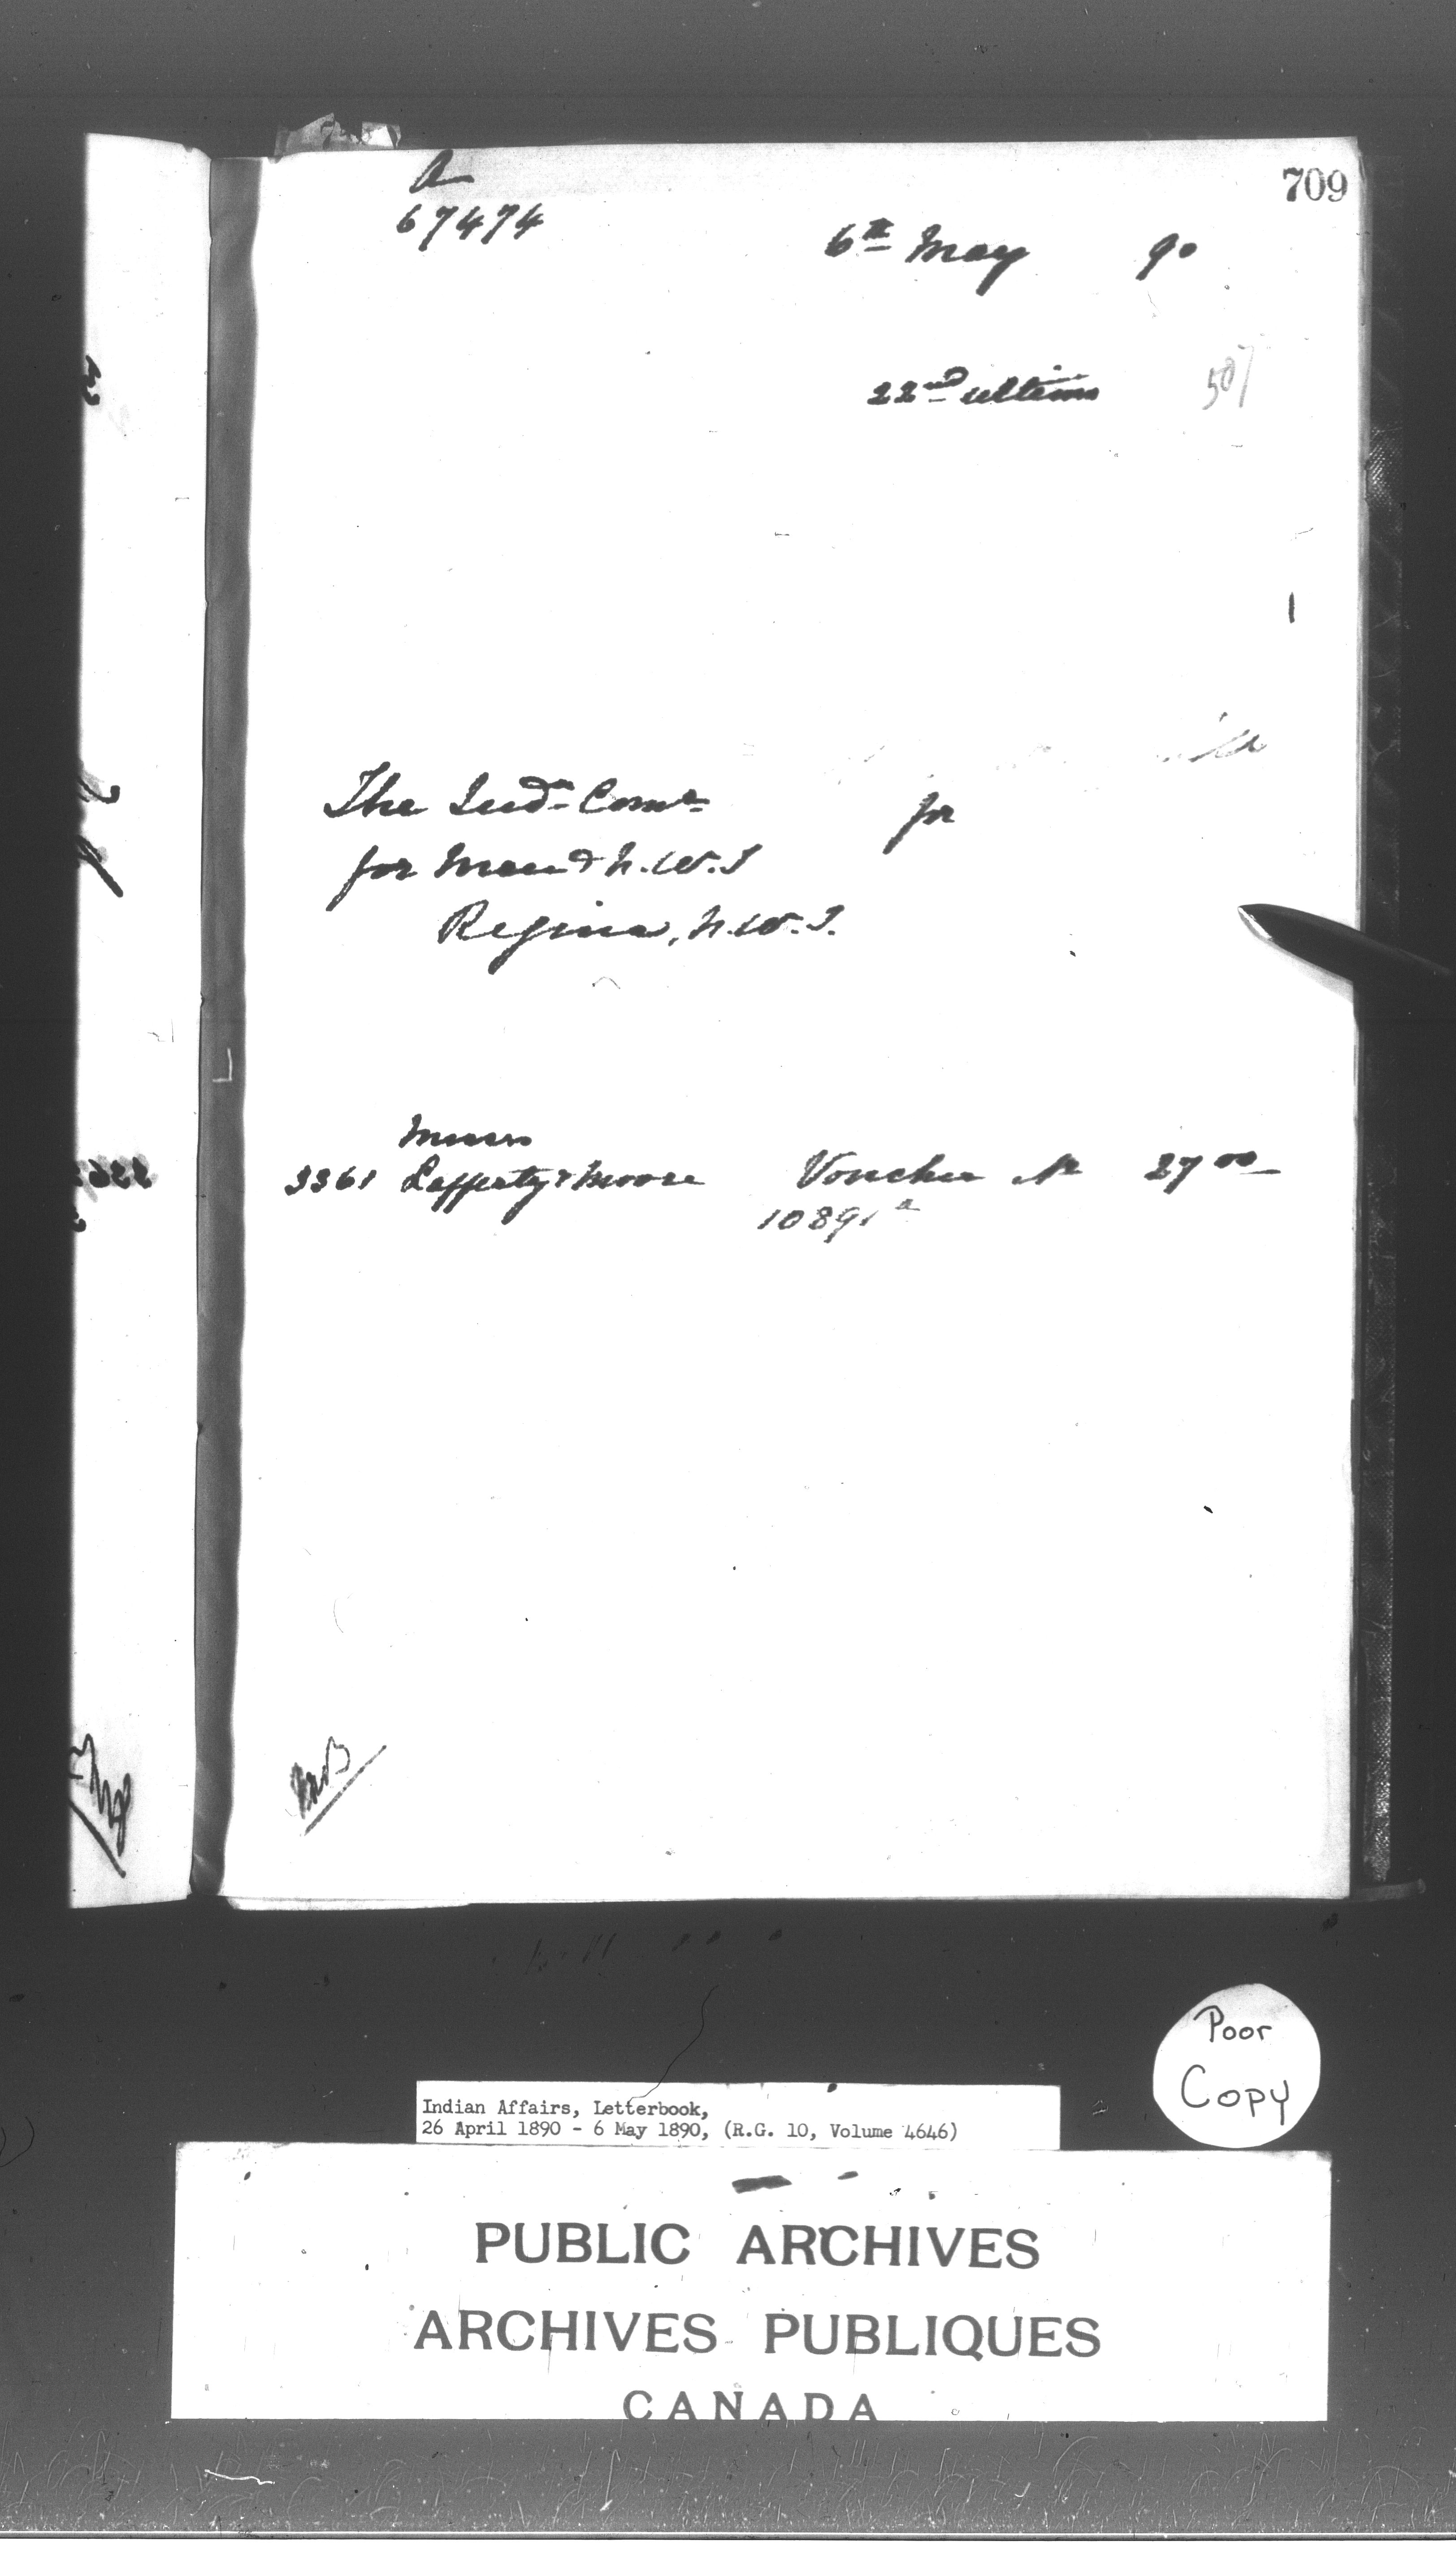 709
A
67474
6th May 90
22nd ultimo
507
The Indn Comr
for
for Man & N.W.T
Regina, N.W.T.
Messrs
3361 Lafferty & Moore Voucher No 27 00
10891 a
Poor
Copy
Indian Affairs, Letterbook,
26 April 1890 - 6 May 1890, (R.G. 10, Volume 4646)
PUBLIC ARCHIVES
ARCHIVES PUBLIQUES
CANADA